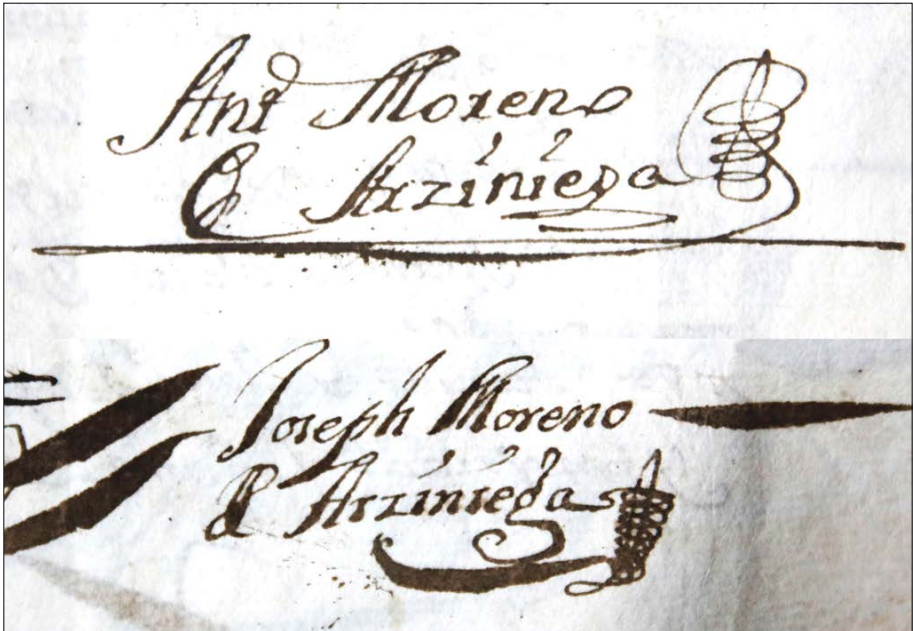 Anto Moreno
& Arziniega
Joseph Moreno
& Arziniega